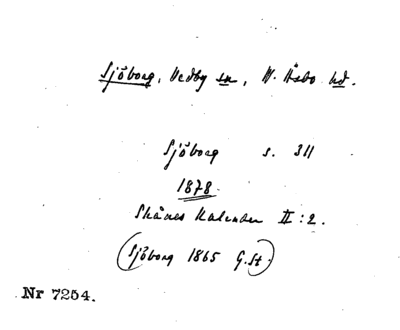 Sjöborg, Vedby sn, N. Åsbo hd.
Sjöborg s. 311
1878.
Skånes Kalender II:2.
(Sjöborg 1865 G.St.)
Nr 7254.